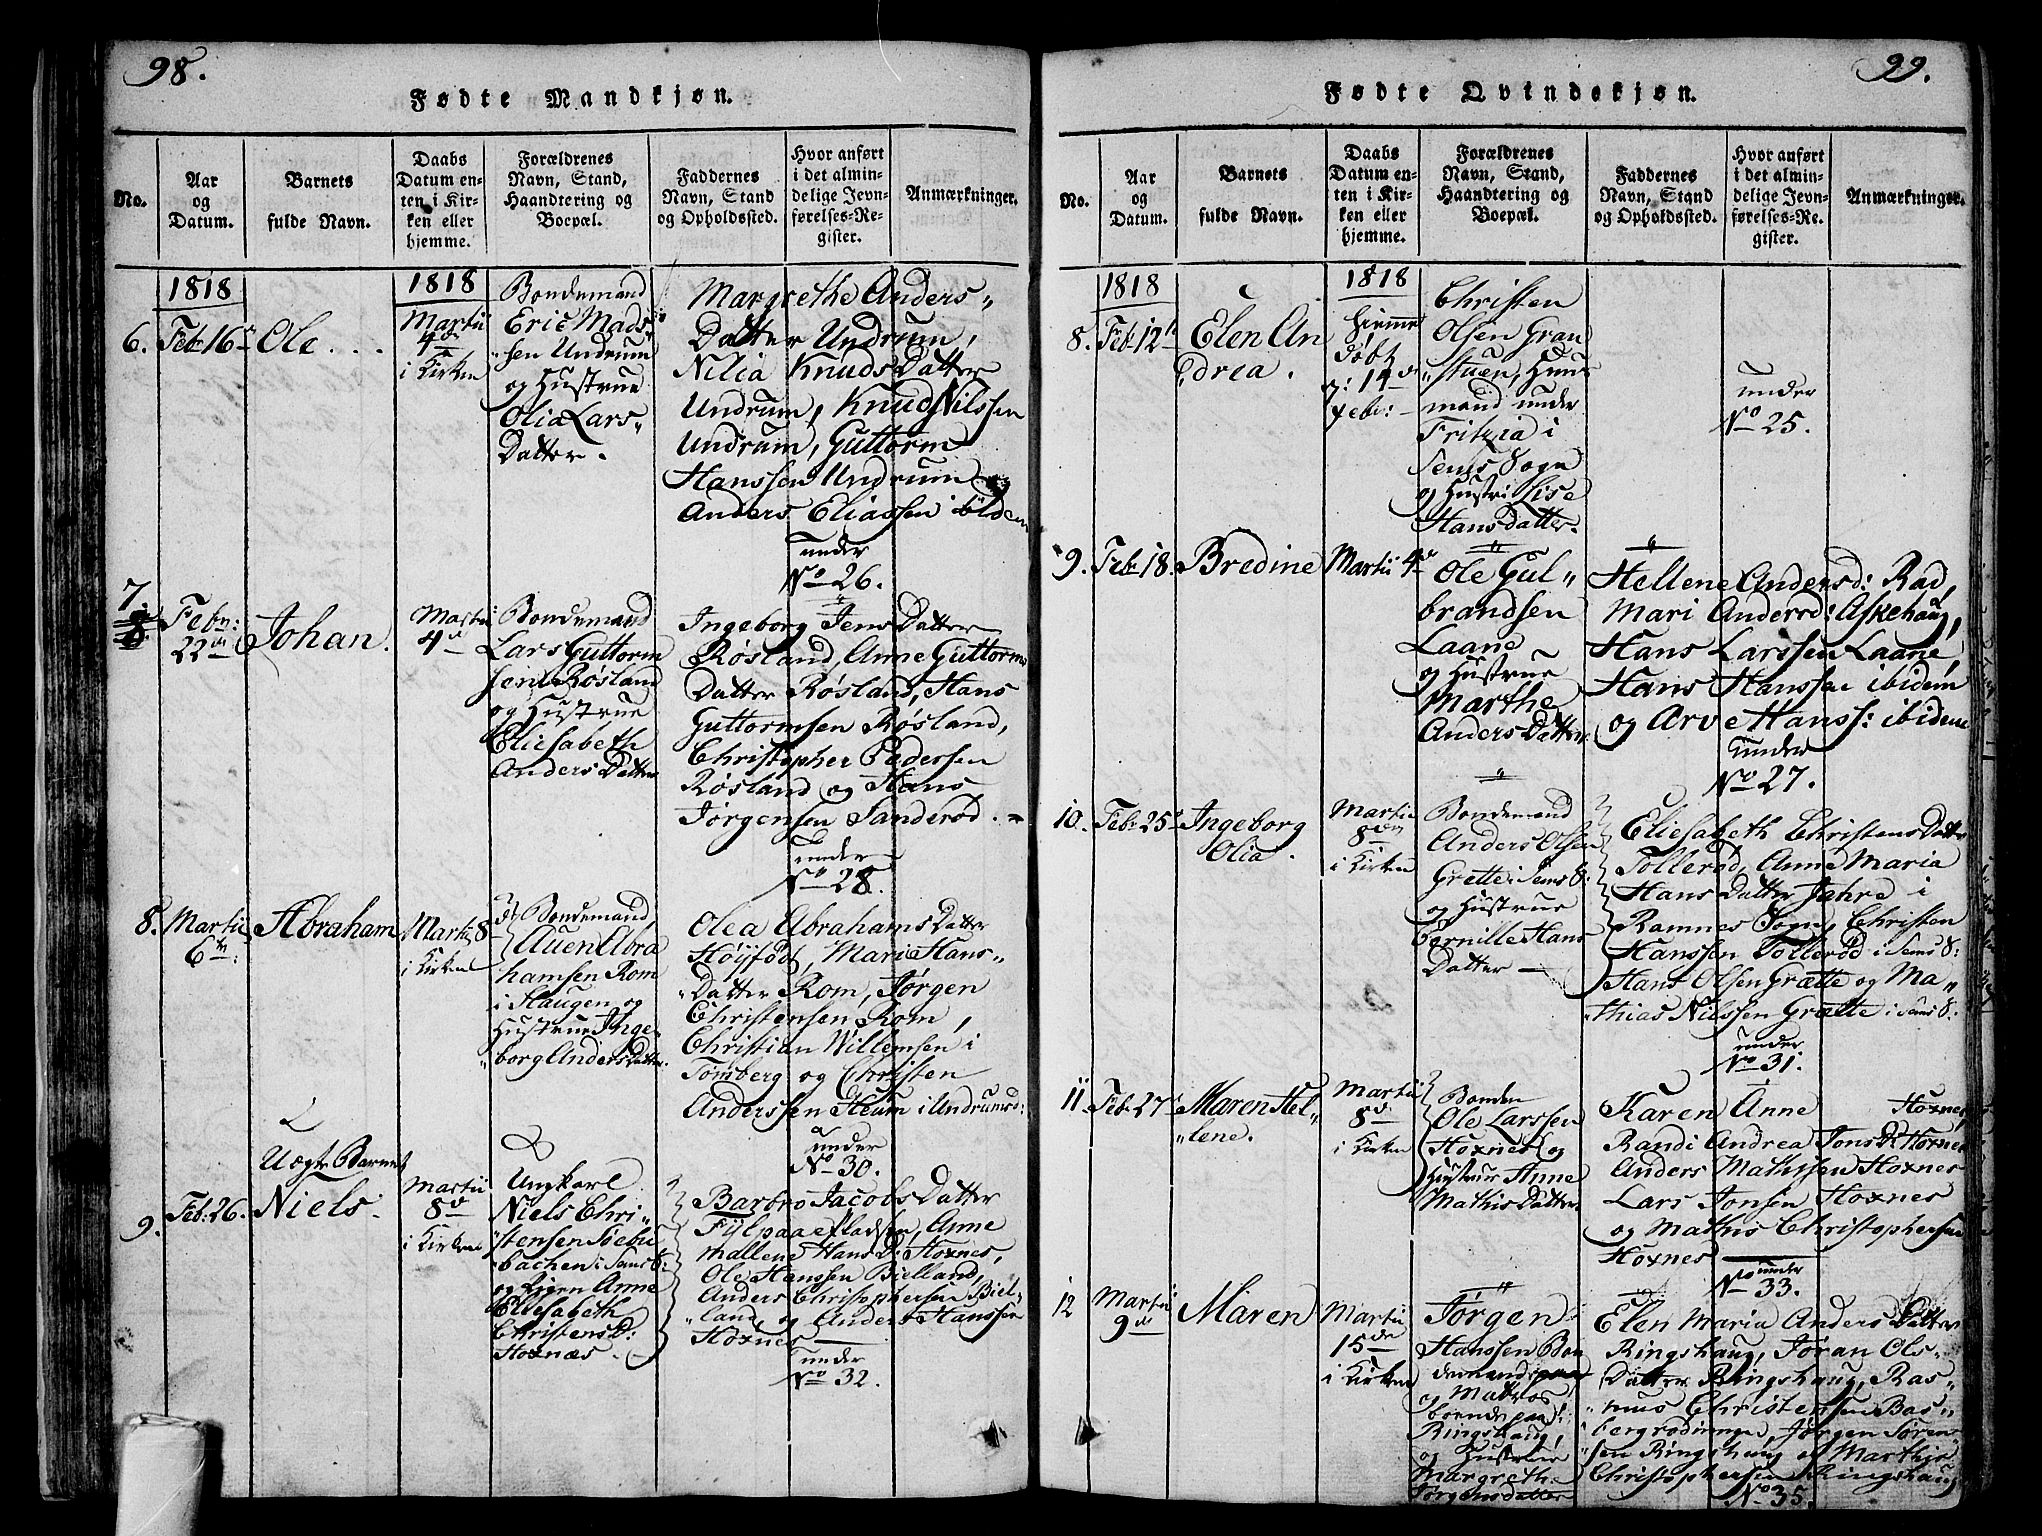 98.
Fødte Mandkjøn.
No.
Aar
og
Datum.
Barnets
fulde Navn.
Daabs
Datum en-
ten i Kir-
ken eller
hjemme.
Forældrenes
Navn, Stand,
Haandtering og
Boepæl.
Faddernes
Navn, Stand
og Opholdssted.
Hvor anført
i det almin-
delige Jevn-
førelses-Re-
gister.
Anmærkninger.
1818
6. Feb: 16
Ole
1818
Martii
4de
i Kirken
Bondemand
Eric Mads
sen Undrum
og Hustrue
Olia Lars
Datter.
Margrethe Anders
Datter Undrum,
Nilia Knuds Datter
Undrum, Knud Nilssen
Undrum, Guttorm
Hanssen Undrum og
Anders Eliassen ibidem
under
No 26.
7.
8.
Febr:
22de
Johan.
Martii
4de
Bondemand
Lars Guttorm
sen Røsland
og Hustrue
Eliesabeth
Anders Datter
Ingeborg Jens Datter
Røsland, Anne Guttorms
Datter Røsland, Hans
Guttormsen Røsland,
Christopher Pedersen
Røsland og Hans
Jørgensen Sanderød.
under
No 28.
8. Martii
6te
Abraham
Martii 8
i Kirken
Bondemand
Auen Abra
hamsen Rom
i Haugen og
Hustrue Inge
borg Anders Datter.
Olea Abrahams Datter
Høyjfødt, Marie Hans
Datter Rom, Jørgen
Christensen Rom,
Christian Willemsen i
Tønsberg og Christen
Anderssen Heum i Undrumsd:
under
No 30.
9. Feb: 26.
Uægte Barnet
Niels
Martii
8de
i Kirken
Ungkarl
Niels Chri
stensen Sæbu
bachen i Sems S:
og Pigen Anne
Eliesabeth
Christens D:
Hoxnæs.
Barbro Jacobs Datter
Fylpaaefladsen, Anne
Mallene Hans D: Hoxnes,
Ole Hanssen Bielland,
Anders Christophersen Biel
land, og Anders Hanssen
Hoxnes
under
No 32.
99.
Fødte Qvindekjøn.
No.
Aar
og
Datum.
Barnets
fulde Navn.
Daabs
Datum en-
ten i Kir-
ken eller
hjemme.
Forældrenes
Navn, Stand,
Haandtering og
Boepæl.
Faddernes
Navn, Stand
og Opholdssted.
Hvor anført
i det almin-
delige Jevn-
førelses-Re-
gister.
Anmærkninger.
1818
8. Feb: 12
Elen An
drea.
1818
hiemme
døbt
14
Febr:
Christen
Olsen Gran
stuen, Huus
mand under
Fritzia i
Sems Sogn
og Hustru Lise
Hansdatter.
under
No 25.
9. Feb: 18.
Bredine
Martii 4de
Ole Gul
brandsen
Laane
og Hustrue
Marthe
Anders Datter
Hellene Andersd: Rad,
Mari Andersd: Askehaug,
Hans Larssen Laane,
Hans Hanssen ibidem
og Arve Hanss: ibidem
under
No 27.
10. Feb: 25
Ingeborg
Olia.
Martii
8de
i Kirken
Bondemand
Anders Olsen
Grette i Sems S:
og Hustrue
Pernille Hans
Datter
Eliesabeth Christens Datter
Tollerød, Anne Maria
Hans Datter Jahre i
Ramnes Sogn, Christen
Hanssen Tollerød i Sems S:
Hans Olsen Grætte og Ma
thias Nilssen Grætte i Sems S:
under
No 31.
11. Feb: 27
Maren Hel
lene.
Martii
8de
i Kirken
Bonden
Ole Larssen
Hoxnes og
Hustrue Anne
Mathis Datter
Karen Anne Hoxnes,
Randi Andrea Jons D: Hoxnes
Anders Mathissen Hoxnes
Lars Jonsen Hoxnes
og Mathis Christophersen
Hoxnes
under
No 33.
12 Martii
9de
Maren
Martii
15de
i Kirken
Jørgen
Hanssen Bon
demand
og Matros
boende paa
Ringshaug,
og Hustrue
Margreth
Jørgensdatter
Elen Maria Anders Datter
Ringshaug, Jøran Ols
Datter Ringshaug, Ras
mus Christensen Bas
bergrødningen, Jørgen Søren
sen Ringshaug og Marthis
Christophersen Ringshaug
No 35.